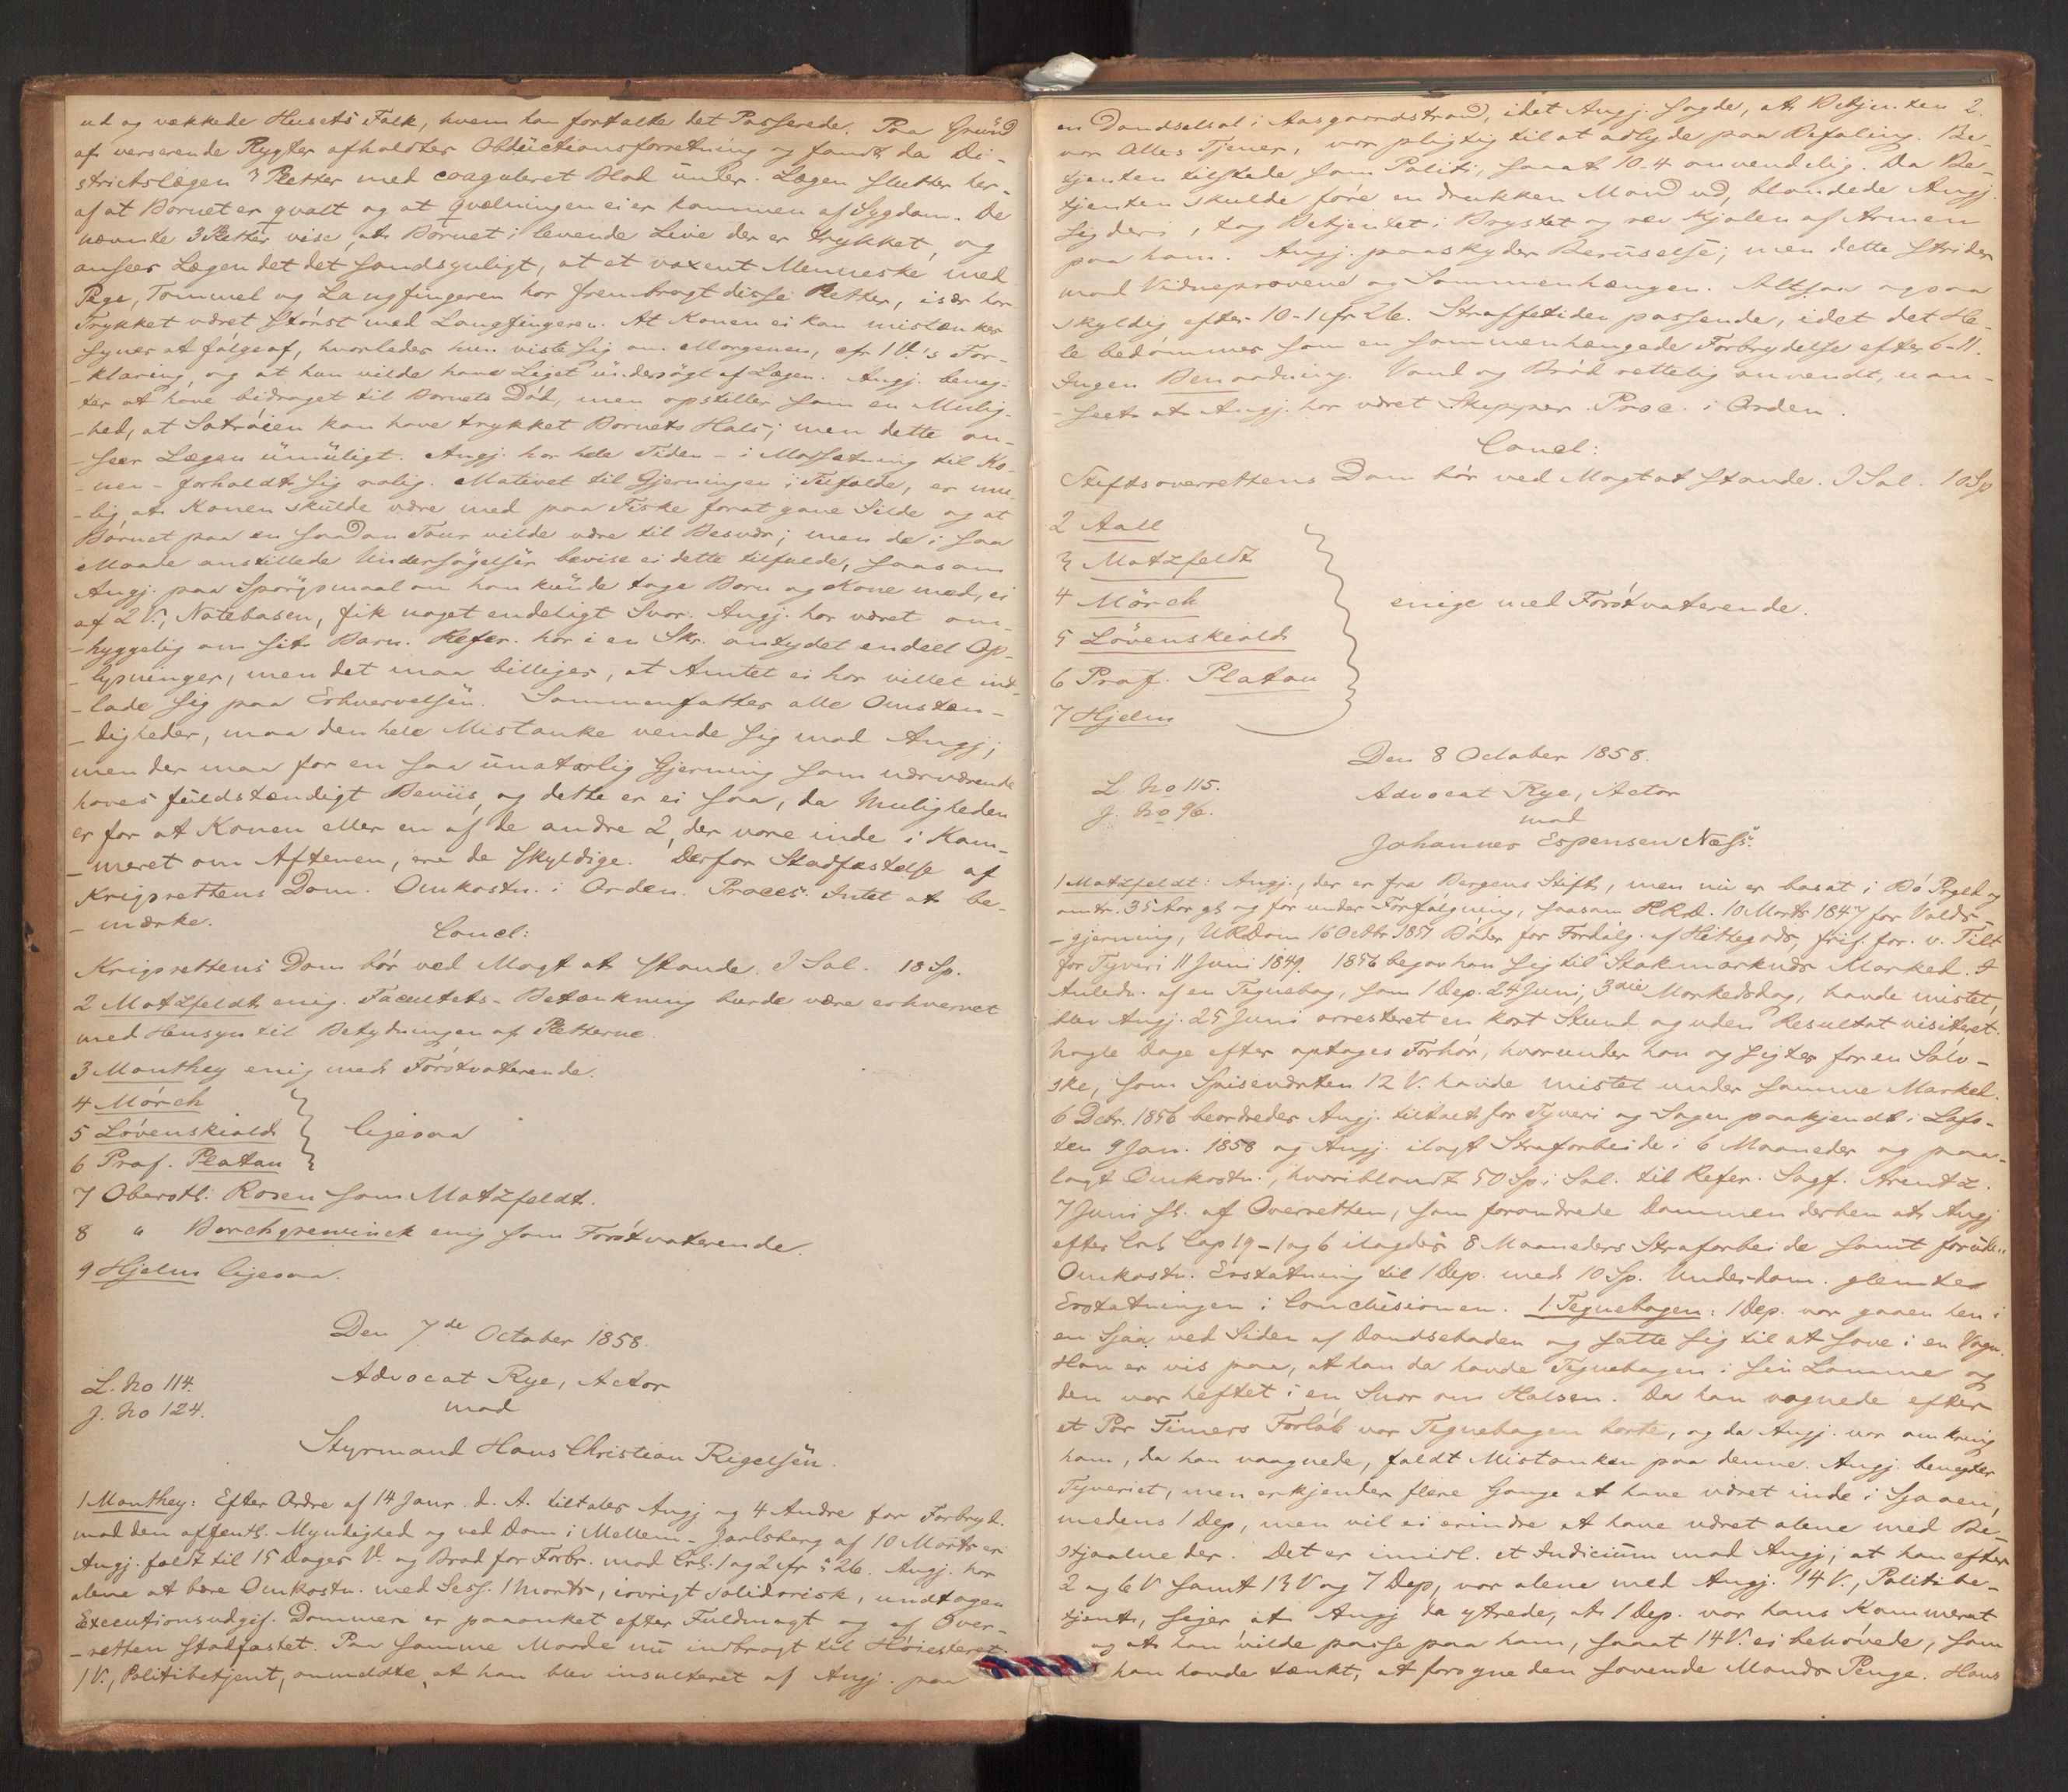 ud og vækkede Husets Folk, hvem han fortalte det Passerede. Paa Grund
af verserende Rygter afholdtes Obductionsforretning og fandt da Di-
strictslægen 3 Pletter med coaguleret Blod under. Lægen slutter her-
af at Barnet er qvalt og at Qvælningen ei er kommen af Sygdom. De
nævnte 3 Pletter vise, at Barnet i levende Live der er trykket, og
ansees Lægen det det sandsynligt, at et voxent Menneske med
Pege, Tommel og Langfingeren har frembragt disse Pletter, især har
Trykket været størst med Langfingeren. At Konen ei kan mistænkes
synes at følge af, hvorledes hun viste sig om Morgenen, cfr 1 V's For-
-klaring og at hun vilde have Liget undersøgt af Lægen. Angj. beneg-
ter at have bidraget til Barnets Død, men opstiller som en Mulig-
-hed, at Satrøien kan have trykket Barnets Hals; men dette an-
-seer Lægen umuligt. Angj. har hele Tiden - i Modsætning til Ko-
-nen - forholdt sig rolig. Motivet til Gjerningen i Tilfælde, er mu-
-lig, at Konen skulde være med paa Fiske forat gane Silde og at
Barnet paa en saadan Tour vilde være til Besvær; men de i saa
Maade anstillede Undersøgelser bevise ei dette tilfulde, saasom
Angj. paa Spørgsmaal om han kunde tage Barn og Kone med, ei
af 2 V., Notebasen, fik noget endeligt Svar. Angj. har været om-
-hyggelig om sit Barn. Defsr. har i en Skr. antydet endeel Op-
-lysninger, men det maa billiges, at Amtet ei har villet ind-
-lade sig paa Erhvervelsen. Sammenfattes alle Omstæn-
-digheder, maa den hele Mistanke vende sig mod Angj;
men der maa for en saa unaturlig Gjerning som nærværende
haves fuldstændigt Beviis, og dette er ei saa, da Muligheden
er for at Konen eller en af de andre 2, der vare inde i Kam-
-meret om Aftenen, ere de skyldige. Derfor Stadfæstelse af
Krigsrettens Dom. Omkostn. i Orden. Proces. Intet at be-
-mærke.
Concl:
Krigsrettens Dom bør ved Magt at stande. I Sal. 18 Sp.
2 Motzfeldt enig. Facultets-Betænkning burde være erhvervet
med Hensyn til Betydningen af Pletterne.
3 Manthey enig med Førstvoterende.
4 Mørch
5 Løvenskiold
6 Prof. Platou
ligesaa
7 Oberstl: Rosen som Motzfeldt.
8 " Borchgrevinck enig som Førstvoterende.
9 Hjelm ligesaa.
Den 7de October 1858.
L. No 114.
J. No 124.
Advocat Rye, Actor
mod
Styrmand Hans Christian Rigelsen.
1 Manthey: Efter Ordre af 14 Janr. d. A. tiltales Angj og 4 Andre for Forbryd.
mod den offentl. Myndighed og ved Dom i Mellem-Jarlsberg af 10 Marts er
Angj. faldt til 15 Dages V. og Brød for Forbr. mod Crl. 1 og 2 cfr § 26. Angj. har
alene at bære Omkostn. med Sess. 1 Marts, iøvrigt solidarisk, undtagen
Executionsudgif. Dommen er paaanket efter Fuldmagt og af Over-
-retten stadfæstet. Paa samme Maade nu indbragt til Høiesteret.
1 V., Politibetjent, anmeldte, at han blev insulteret af Angj. paa
en Dandselsal i Aasgaardstrand, idet Angj. sagde, at Betjenten 2
var Alles Tjener, var pligtig til at adlyde paa Befaling. Be-
tjenten tilstede som Politi, saaat 10-4 anvendelig. Da Be-
tjenten skulde føre en drukken Mand ud, blandede Angj.
sig deri, tog Betjentet i Brystet og rev Kjolen af Armen
paa ham. Angj. paaskyder Beruselse; men dette strider
mod Vidneprovene og Sammenhængen. Altsaa ogsaa
skyldig efter 10-1 cfr 26. Straffetiden passende, idet det He-
le bedømmes som en sammenhængede Forbrydelse efter 6-11.
Ingen Benaadning. Vand og Brød rettelig anvendt, uan-
-seet at Angj. har været Skipper. Proc. i Orden.
Concl:
Stiftsoverrettens Dom bør ved Magt at stande. I Sal. 10 Sp
2 Aall
3 Motzfeldt
4 Mörch
5 Lövenskiold
6 Prof. Platou
7 Hjelm
enige med Førstvoterende.
Den 8 October 1858.
L. No 115.
J. No 96.
Advocat Rye, Actor
mod
Johannes Espensen Næss.
1 Motzfeldt: Angj., der er fra Bergens Stift, men nu er bosat i Bø Prgld og
omtr. 35 Aar gl. og før under Forfølgning, saasom HRD. 10 Marts 1847 for Volds-
-gjerning, URDom 16 Octbr 1851 Bøder for Fordølg. af Hittegods, frif. for. v. Tilt
for Tyveri 11 Juni 1849. 1856 begav han sig til Stokmarknæs Marked. I
Anledn. af en Tegnebog, som 1 Dep. 24 Juni, 3die Markedsdag, havde mistet,
blev Angj. 25 Juni arresteret en kort Stund og uden Resultat visiteret.
Nogle Dage efter optages Forhør, hvorunder han og sigtes for en Sølv-
ske, som Spiseværten 12 V. havde mistet under samme Marked.
6 Decbr. 1856 beordredes Angj. tiltalt for Tyveri og Sagen paakjendt i Lofo-
ten 9 Jan. 1858 og Angj. ilagt Strafarbeide i 6 Maaneder og paa-
lagt Omkostn., hvoriblandt 50 Sp i Sal. til Defsr. Sagf. Arentz.
7 Juni st. af Overretten, som forandrede Dommen derhen at Angj
efter Crl. Cap 19-1 og 6 ilagdes 8 Maaneders Strafarbeide samt foruden
Omkostn. Erstatning til 1 Dep. med 10 Sp. Underdom. glemte
Erstatningen i Conclusionen. 1. Tegnebogen: 1 Dep. var gaaen hen i
en Sjaa ved Siden af Dandseboden og satte sig til at sove i en Vogn.
Han er vis paa, at han da havde Tegnebogen i sin Lomme og
den var heftet i en Snor om Halsen. Da han vognede efter
et Par Timers Forløb var Tegnebogen borte, og da Angj. var omkring
ham, da han vaagnede, faldt Mistanken paa denne. Angj. benegter
Tyveriet, men erkjender flere Gange at have været inde i Sjaaen,
medens 1 Dep, men vil ei erindre at have været alene med Be-
stjaalne der. Det er imidl. et Indicium mod Angj, at han efter
2 og 6 V samt 13 V og 7 Dep, var alene med Angj. 14 V., Politibe-
tjent, siger at Angj da ytrede, at 1 Dep. var hans Kammerat
og at han vilde passe paa ham, saaat 14 V. ei behøvede, som
han havde tænkt, at forvgne den sovende Mands Penge. Hans